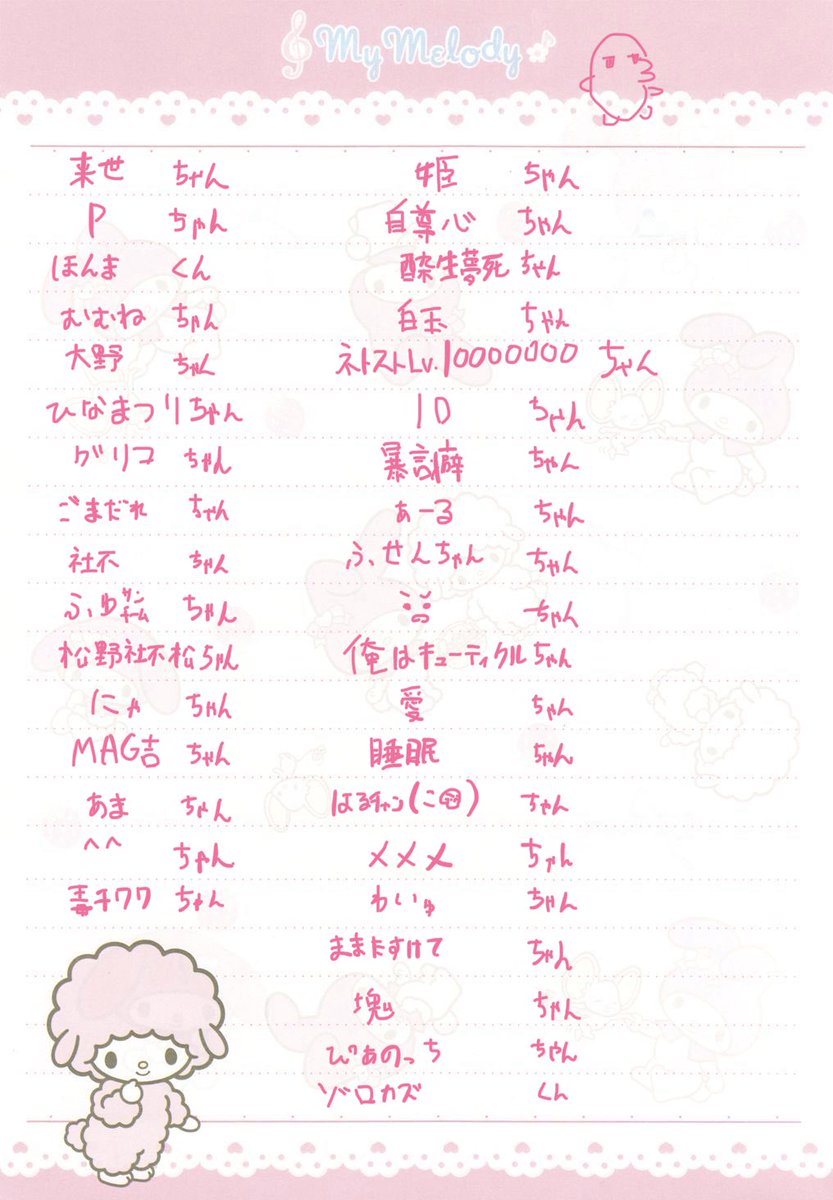 My Melody
来世 ちゃん
P ちゃん
ほんま くん
むむね ちゃん
大野 ちゃん
ひなまつり ちゃん
グリコ ちゃん
ごまだれ ちゃん
社不 ちゃん
ふゆサンドーム ちゃん
松野社不松 ちゃん
にゃ ちゃん
MAG吉 ちゃん
あま ちゃん
^^ ちゃん
毒チワワ ちゃん
姫 ちゃん
自尊心 ちゃん
酔生夢死 ちゃん
白玉 ちゃん
ネトストLv.10000000 ちゃん
10 ちゃん
暴言癖 ちゃん
ぁーる ちゃん
ふせんちゃん ちゃん
ちゃん
俺はキューティクル ちゃん
愛 ちゃん
睡眠 ちゃん
はるチャン ちゃん
メメメ ちゃん
わいゅ ちゃん
ままたすけて ちゃん
塊 ちゃん
ぴあのっち ちゃん
ゾロカズ くん